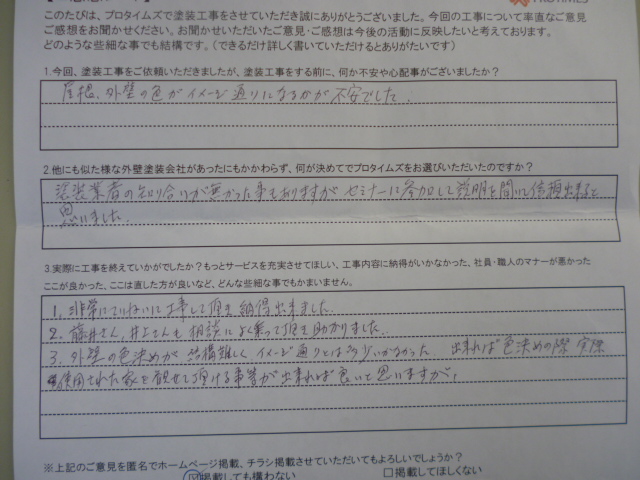 このたびは、プロタイムズで塗装工事をさせていただき誠にありがとうございました。今回の工事について率直なご意見
ご感想をお聞かせください。お聞かせいただいたご意見・ご感想は今後の活動に反映したいと考えております。
どのような些細な事でも結構です。（できるだけ詳しく書いていただけるとありがたいです）
1.今回、塗装工事をご依頼いただきましたが、塗装工事をする前に、何か不安や心配事がございましたか？
屋根、外壁の色がイメージ通りになるかが不安でした。
2.他にも似た様な外壁塗装会社があったにもかかわらず、何が決めてでプロタイムズをお選びいただいたのですか？
塗装業者の知り合いが無かった事もありますがセミナーに参加して説明を聞いて信頼出来ると
思いました。
3.実際に工事を終えていかがでしたか？もっとサービスを充実させてほしい、工事内容に納得がいかなかった、社員・職人のマナーが悪かった
ここが良かった、ここは直した方が良いなど、どんな些細な事でもかまいません。
1, 非常にていねいに工事して頂き納得出来ました。
2. 藤井さん、井上さんも相談によく乗って頂き助かりました。
3, 外壁の色決めが結構難しくイメージ通りとは少しいかなかった 出来れば色決めの際実際
使用された家を観せて頂ける事等が出来れば良いと思いますが。
※上記のご意見を匿名でホームページ掲載、チラシ掲載させていただいてもよろしいでしょうか？
☑掲載しても構わない □掲載してほしくない